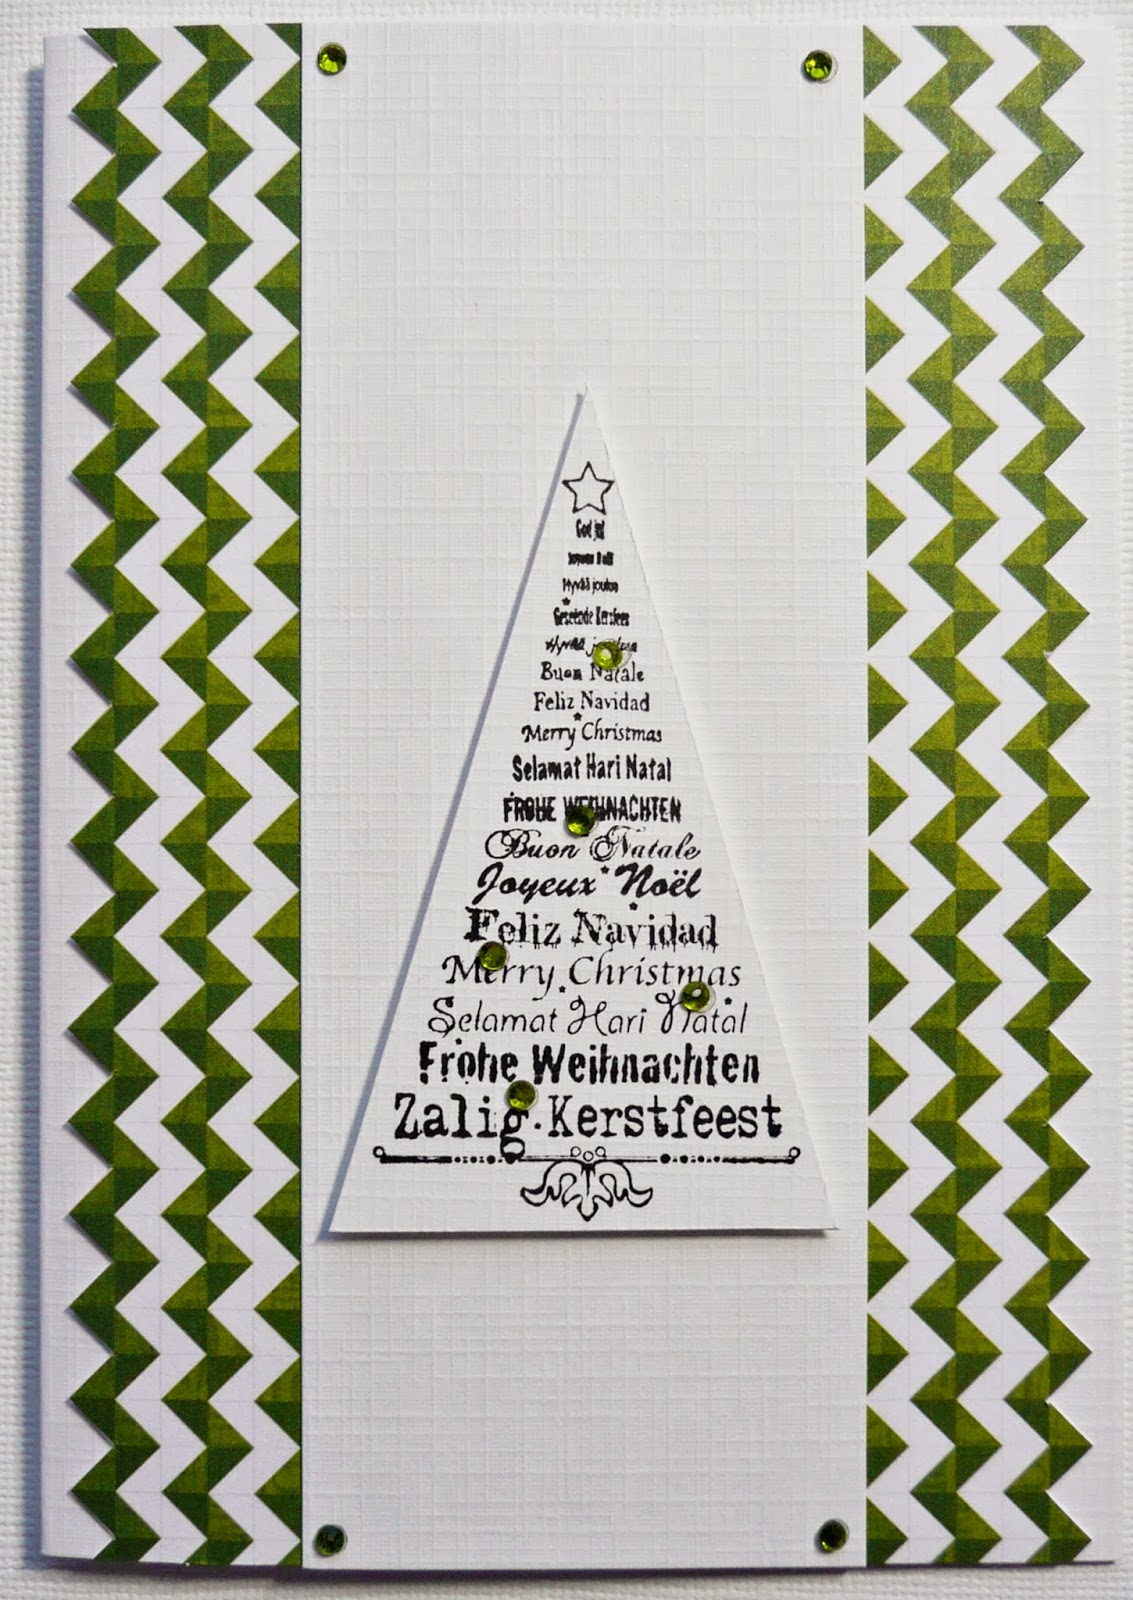 God jul
Hyvää joulua
Geseënde Kersfees
Hyvää
Buon Natale
Feliz Navidad
Merry Christmas
Selamat Hari Natal
FROHE WEIHNACHTEN
Buon Natale
Joyeux Noël
Feliz Navidad
Merry Christmas
Selamat Hari Natal
Frohe Weihnachten
Zalig Kerstfeest